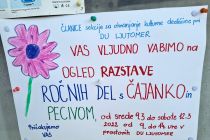 ČLANICE sekcije za ohranjanje kulturne dediščine pri
DU LJUTOMER
VAS VLJUDNO VABIMO na
OGLED RAZSTAVE
ROČNIH DEL S ČAJANKO in
PECIVOM,
od srede 9.3 do sobote 12.3
2022 od 9 do 14 ure v
prostorih DU Ljutomer
Pričakujemo
VAS